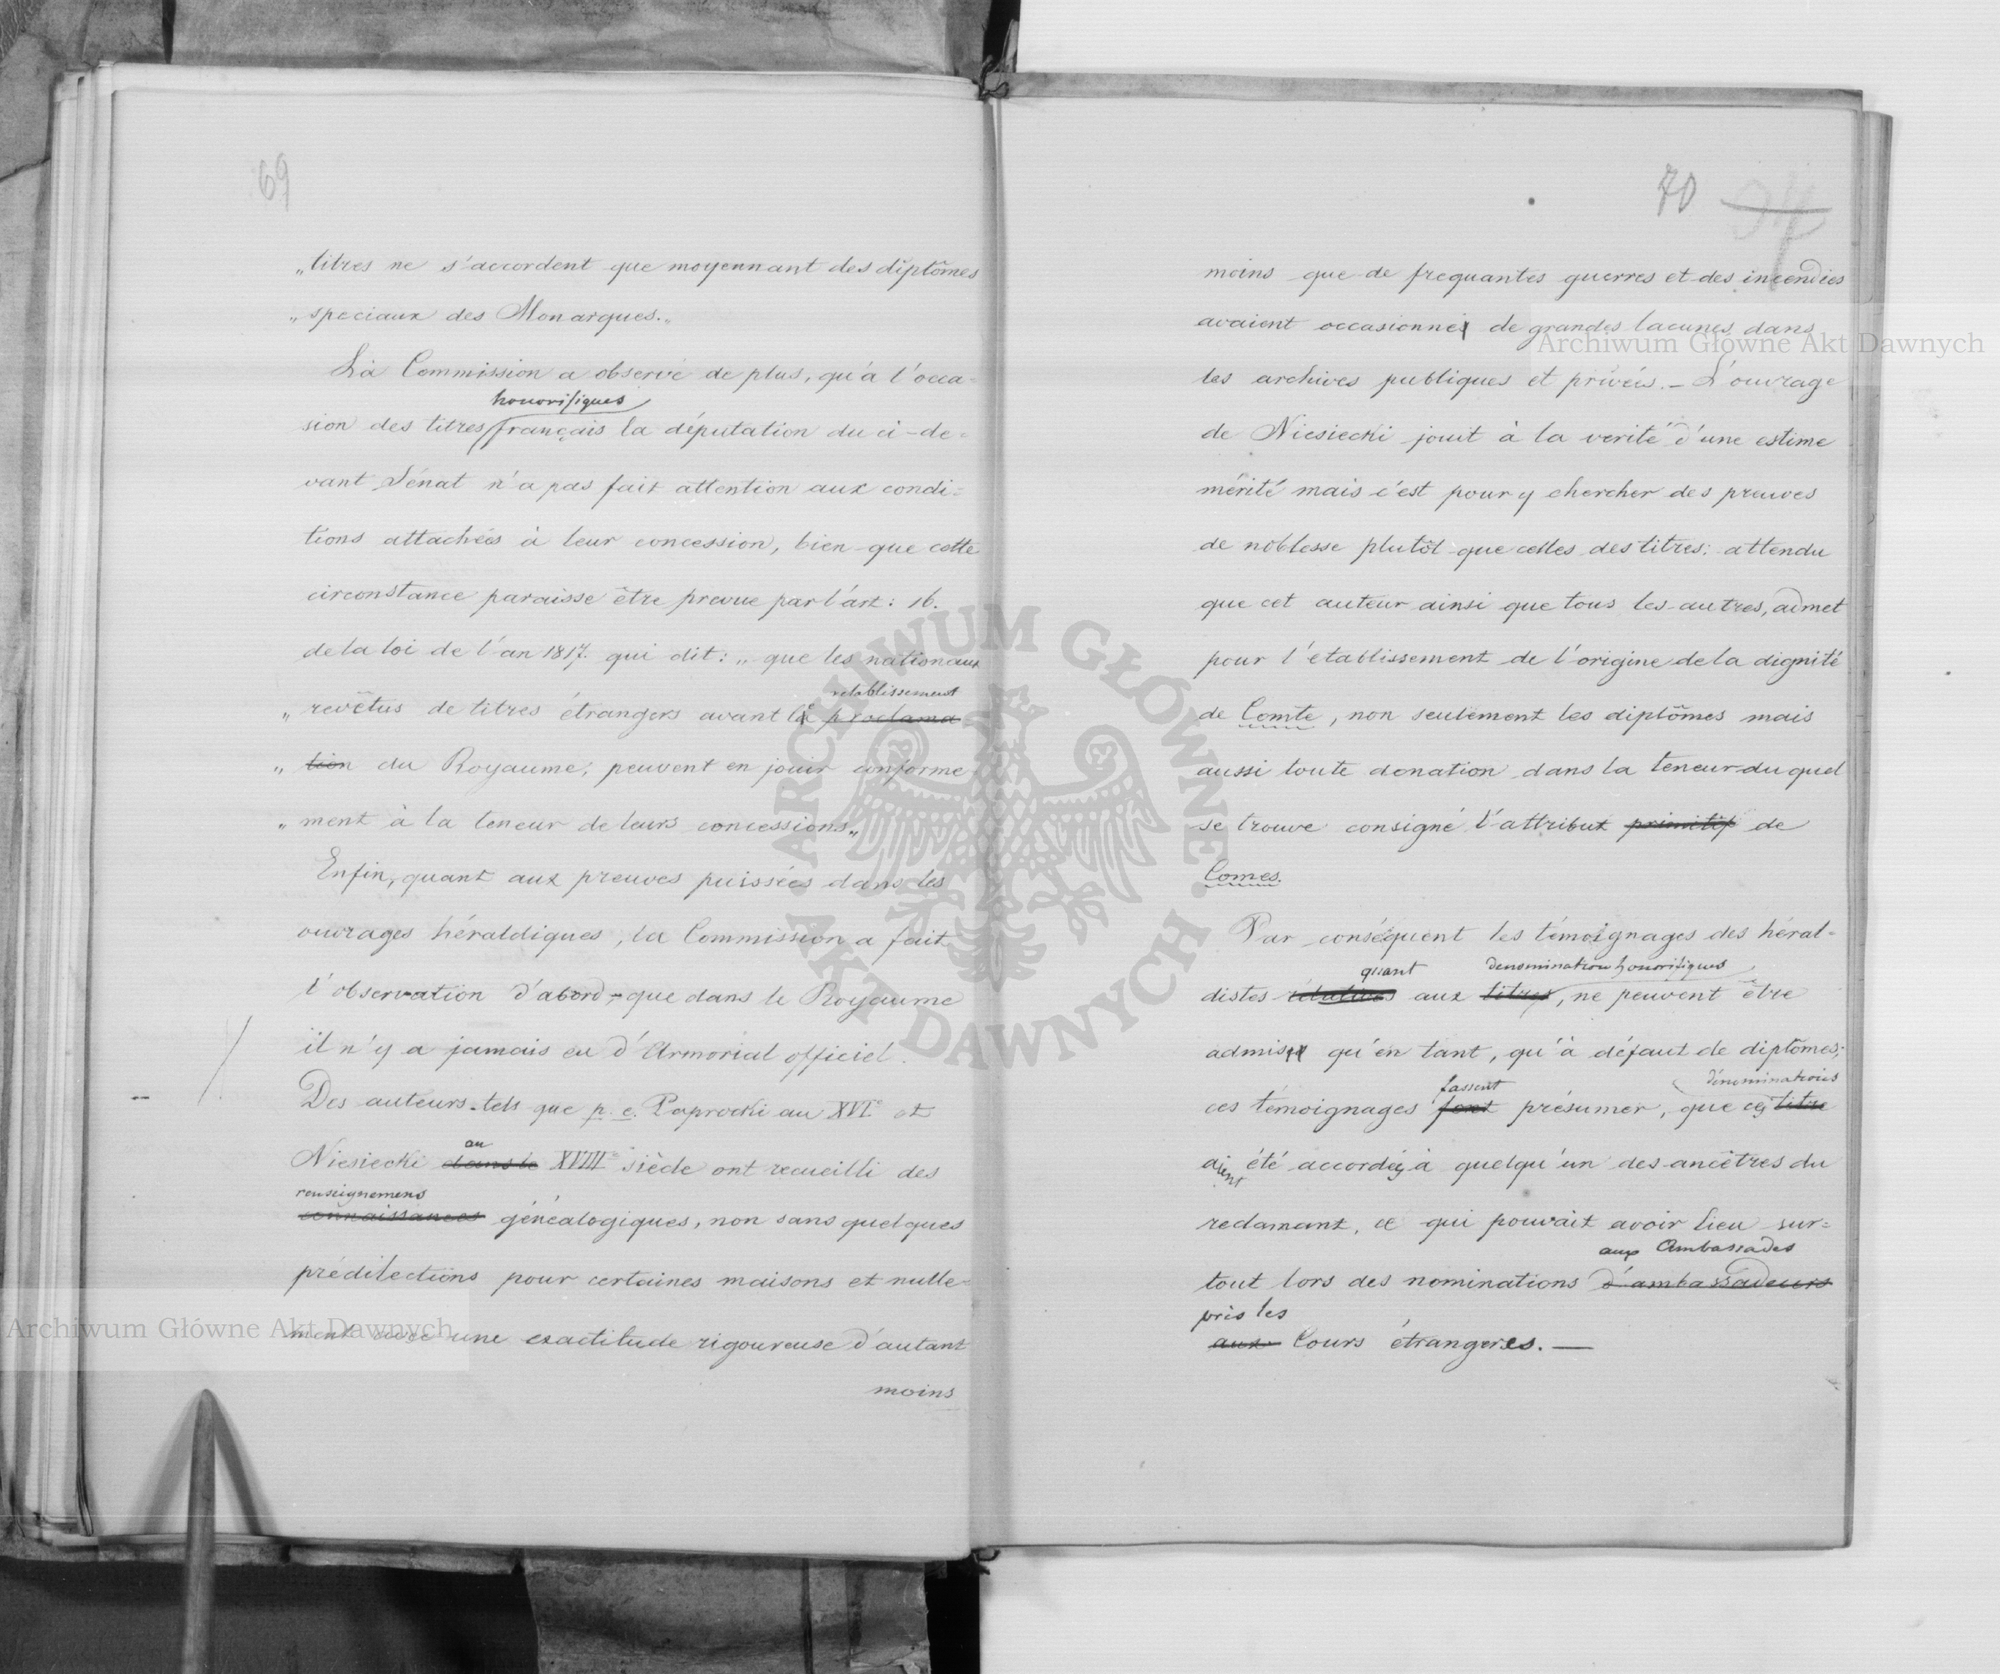 69
„titres ne s'accordent que moyennant des diplômes
„speciaux des Monarques.„
La Commission a observé de plus, qu'à l'occa=
honorifiques
sion des titres français la députation du ci-de=
vant Sénat n'a pas fait attention aux condi=
tions attachées à leur concession, bien que cette
circonstance paraisse être prevue par l'art: 16.
de la loi de l'an 1817. qui dit: „que les nationaux
retablissement
„revêtus de titres étrangers avant le proclama
„tion du Royaume, peuvent en jouir conforme
„ment à la teneur de leurs concessions„
Enfin, quant aux preuves puissées dans les
ouvrages héraldiques, la Commission a fait
l'observation d'abord, que dans le Royaume
il n'y a jamais eu d'Armorial officiel.
Des auteurs tels que p. e. Paprocki au XVIe et
au
Niesiecki dans le XVIIIe siècle ont recueilli des
renseignemens
connaissances généalogiques, non sans quelques
prédilections pour certaines maisons et nulle=
ment avec une exactitude rigoureuse d'autant
moins
70
moins que de frequantes guerres et des incendies
avaient occasionné de grandes lacunes dans
les archives publiques et privées. – L'ouvrage
de Niesiecki jouit à la verité d'une estime
mérité mais c'est pour y chercher des preuves
de noblesse plutôt que celles des titres: attendu
que cet auteur ainsi que tous les autres, admet
pour l'etablissement de l'origine de la dignité
de Comte, non seulement les diplômes mais
aussi toute donation dans la teneur du quel
se trouve consigné l'attribut primitif de
Comes.
Par conséquent les témoignages des héral=
quant denomination honorifiques
distes relatives aux titres, ne peuvent être
admis qu'en tant, qu'à défaut de diplômes;
fassent dénominations
ces témoignages font présumer, que ces titre
aient été accordés à quelqu'un des ancêtres du
reclamant, ce qui pouvait avoir lieu sur=
aux Ambassades
tout lors des nominations d'ambassadeurs
près les
aux Cours étrangeres. —
Archiwum Główne Akt Dawnych
Archiwum Główne Akt Dawnych
ARCHIWUM GŁÓWNE AKT DAWNYCH